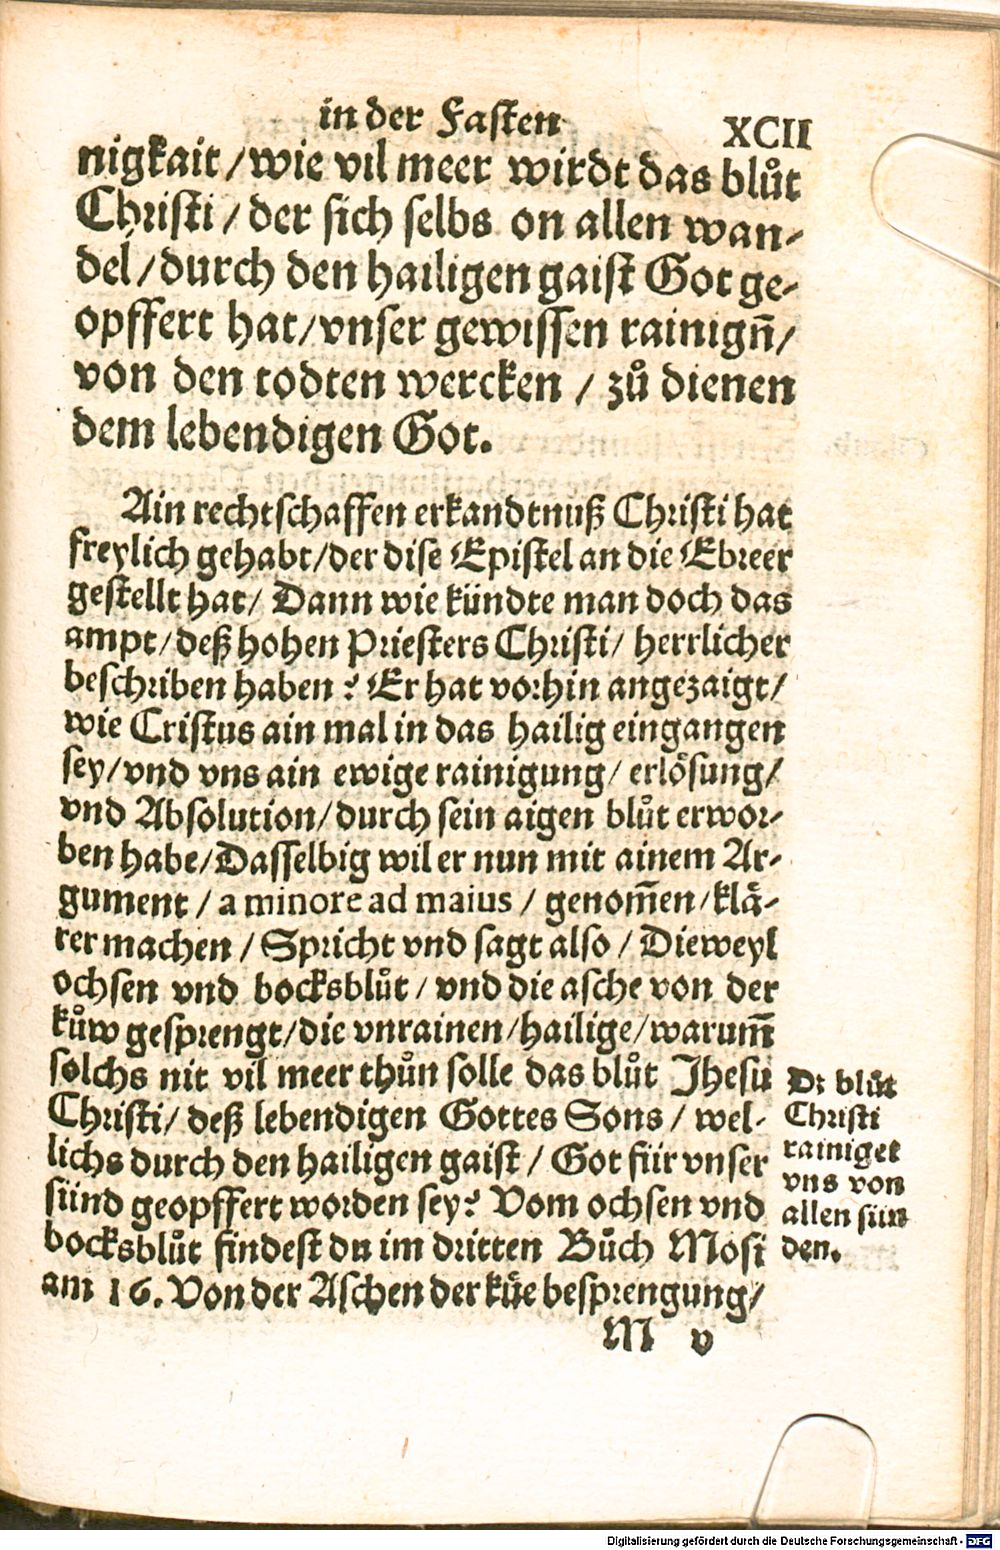 in der Fasten
XCII
nigkait / wie vil meer wirdt das blůt
Christi / der sich selbs on allen wan-
del / durch den hailigen gaist Got ge-
opffert hat / vnser gewissen rainign̄ /
von den todten wercken / zů dienen
dem lebendigen Got.
Ain rechtschaffen erkandtnuß Christi hat
freylich gehabt / der dise Epistel an die Ebreer
gestellt hat / Dann wie kündte man doch das
ampt / deß hohen Priesters Christi / herrlicher
beschriben haben? Er hat vorhin angezaigt /
wie Cristus ain mal in das hailig eingangen
sey / vnd vns ain ewige rainigung / erlösung /
vnd Absolution / durch sein aigen blůt erwor-
ben habe / Dasselbig wil er nun mit ainem Ar-
gument / a minore ad maius / genom̄en / klä-
rer machen / Spricht vnd sagt also / Dieweyl
ochsen vnd bocksblůt / vnd die asche von der
kůw gesprengt / die vnrainen / hailige / warum̄
solchs nit vil meer thůn solle das blůt Jhesu
Christi / deß lebendigen Gottes Sons / wel-
lichs durch den hailigen gaist / Got für vnser
sünd geopffert worden sey? Vom ochsen vnd
bocksblůt findest du im dritten Bůch Mosi
am 16. Von der Aschen der küe besprengung /
Dz blůt
Christi
rainiget
vns von
allen sün
den.
M v
Digitalisierung gefördert durch die Deutsche Forschungsgemeinschaft - DFG